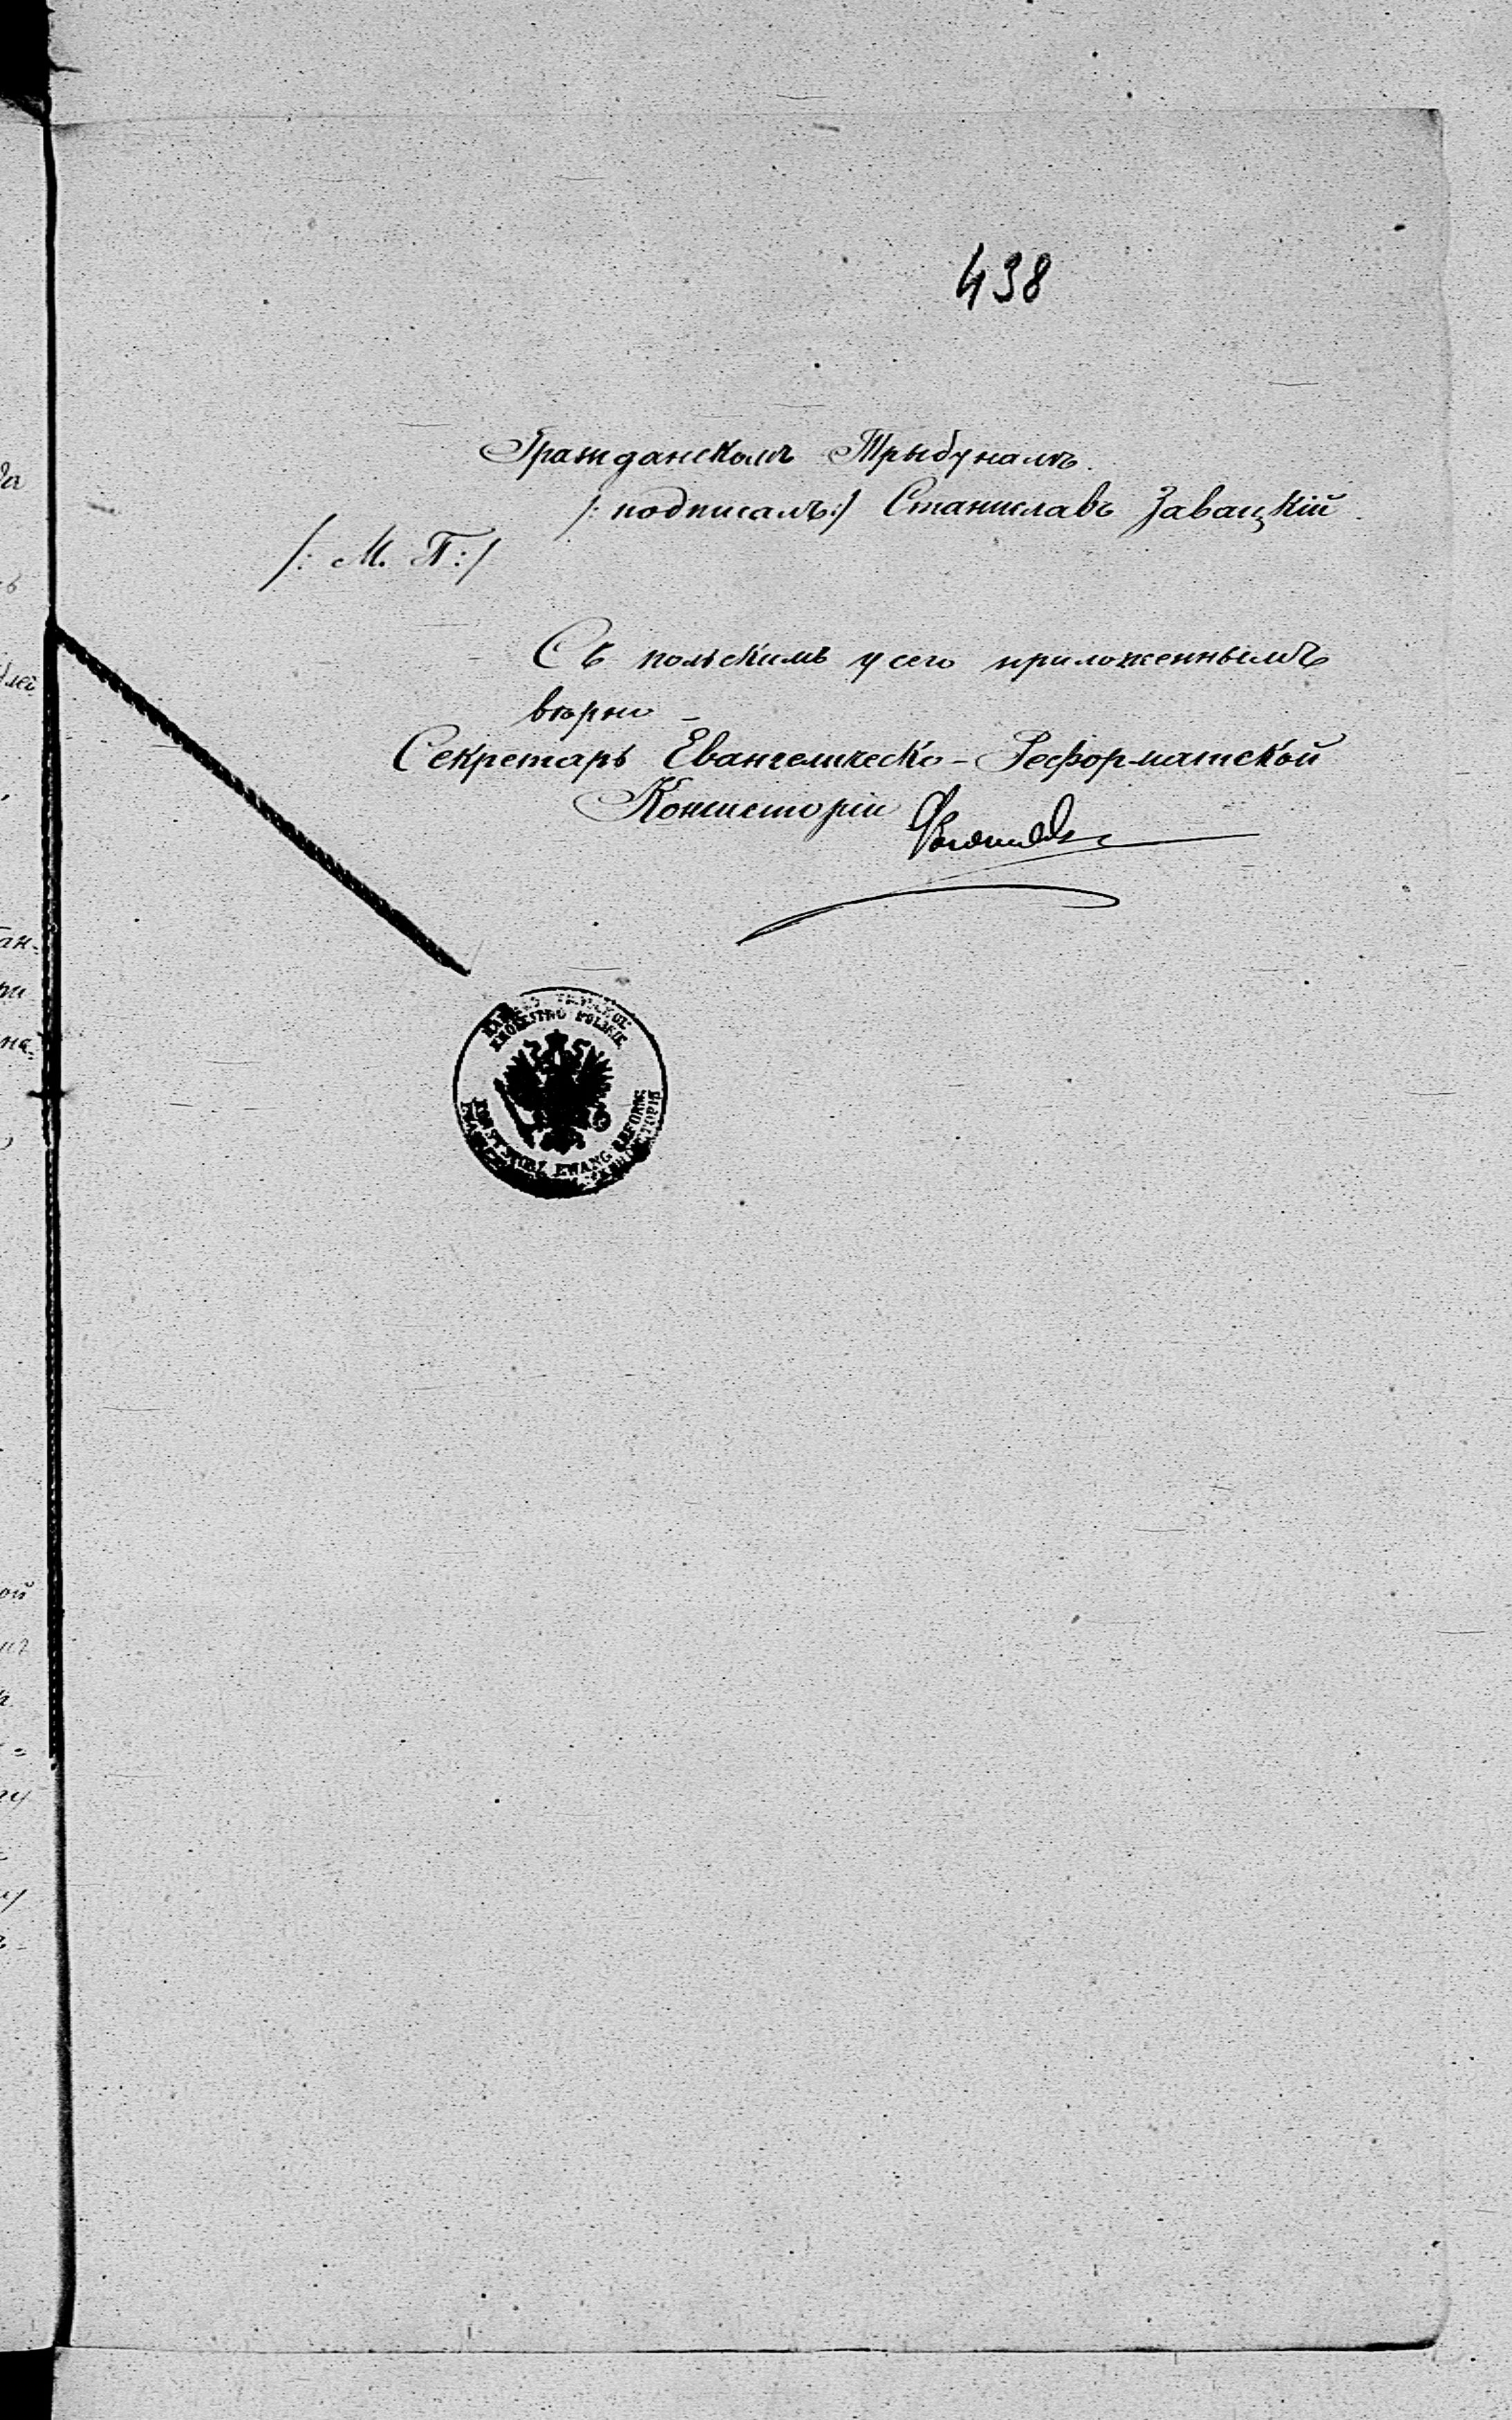 438
Гражданскомъ Трыбуналѣ.
/: подписалъ:/ Станиславъ Завацкій.
/: М. П:/
Съ польскимъ у сего приложеннымъ
вѣрно –
Секретарь Евангелическо-Реформатской
Консисторіи
KRÓLESTWO POLSKIE
KONSYSTORZ EWANG. REFORM.